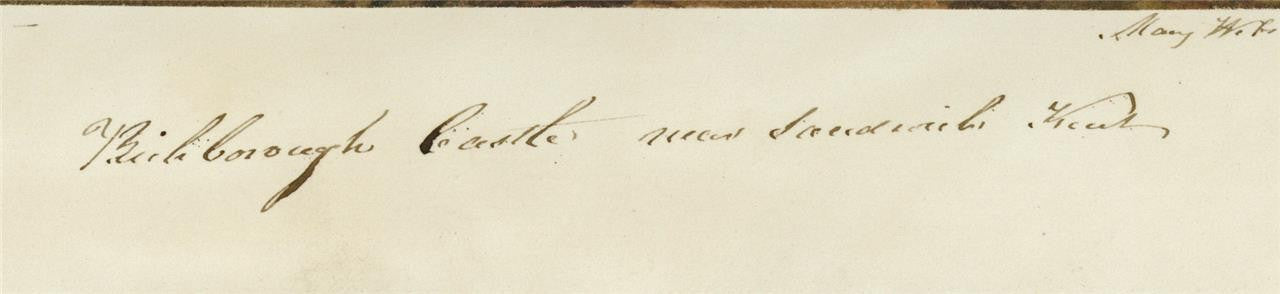 Mary W.
Richborough Castle near Sandwich Kent